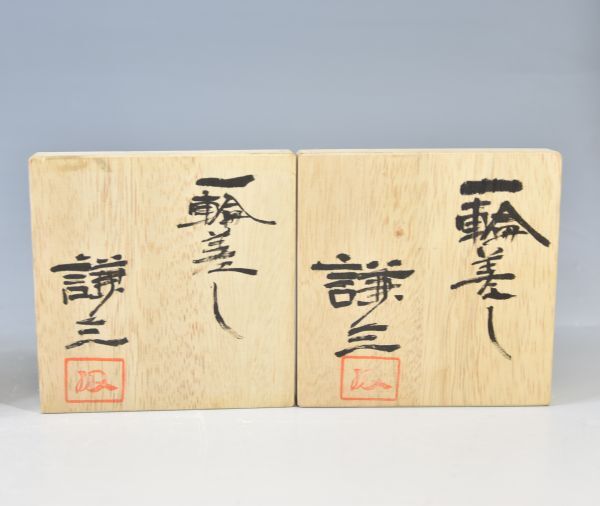 一輪差し
謙三
一輪差し
謙三